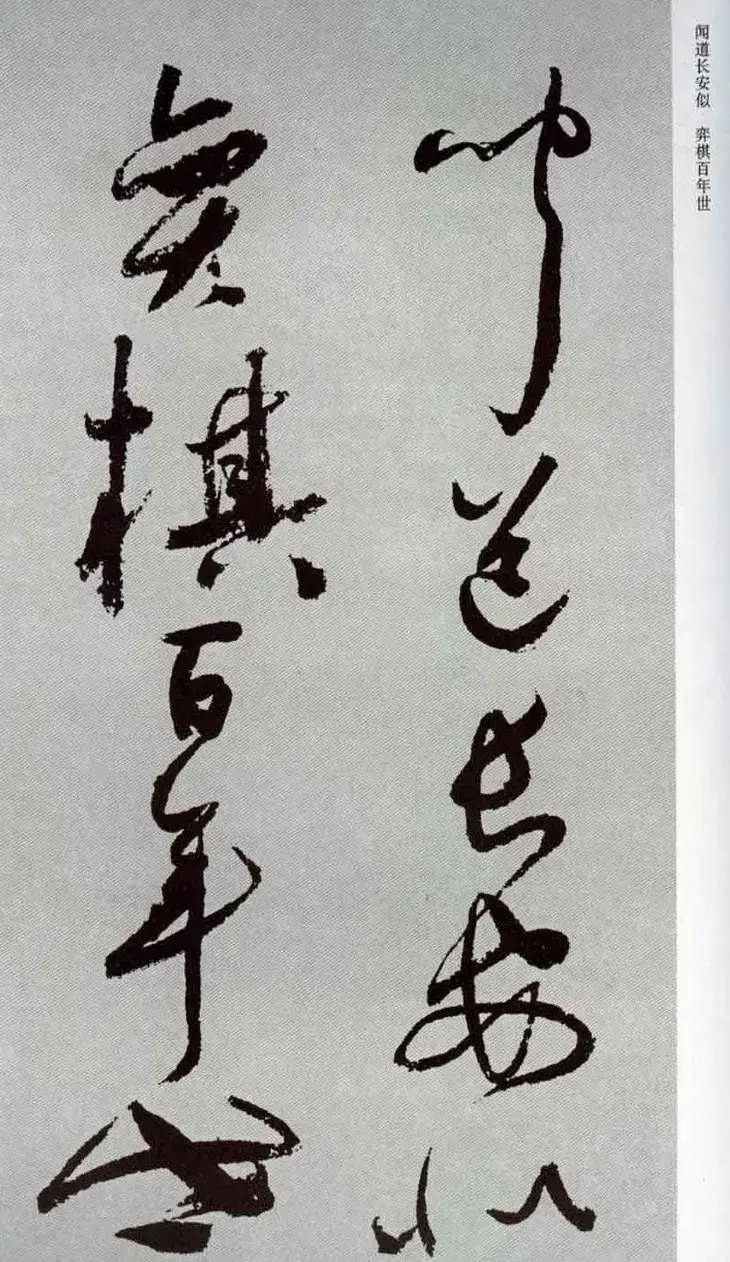 闻道长安似 弈棋百年世
闻道长安似
弈棋百年世